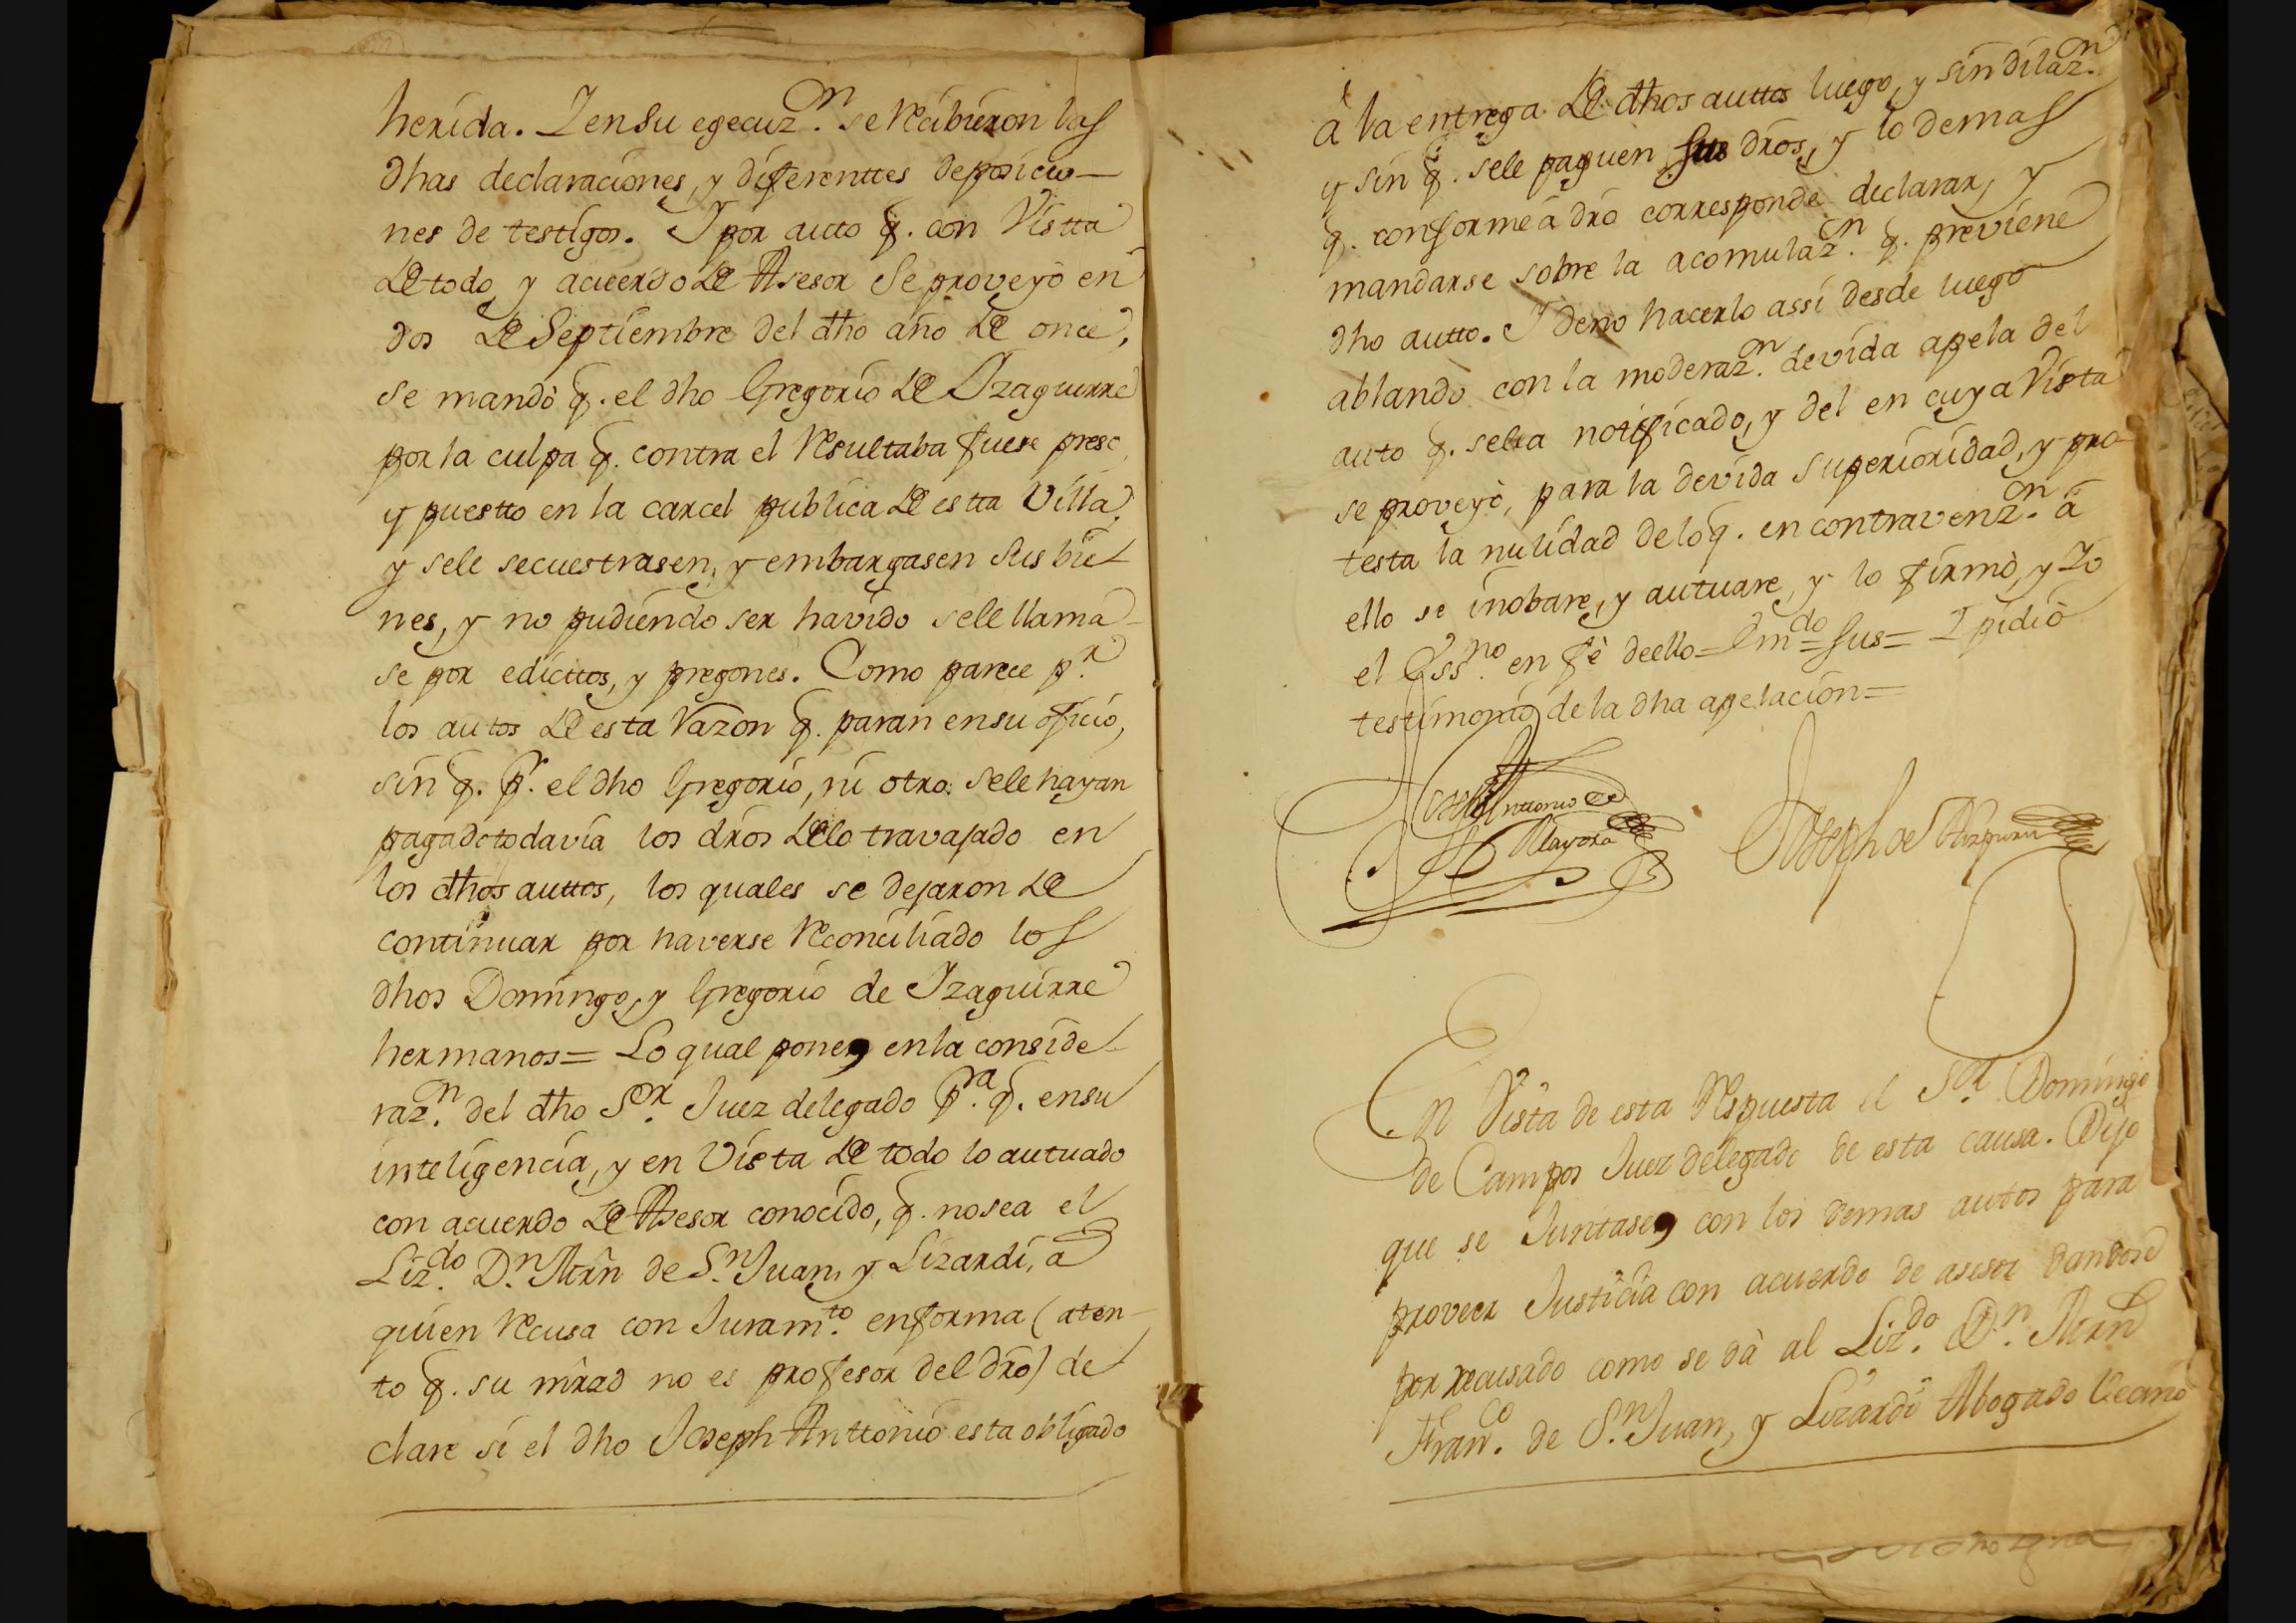 herida. I en su egecuz.n se recibieron las
dhas declaraciones, y diferenttes deposicio-
nes de testigos. I por autto q. con Vistta
de todo, y acuerdo de Asesor se proveyò en
dos de Septiembre del dho año de once,
se mandò q. el dho Gregorio de Izaguirre
por la culpa q. contra el resultaba fuese preso,
y puestto en la carcel publica de estta Villa,
y sele secuestrasen, y embargasen sus bie-
nes, y no pudiendo ser havido sele llama-
se por edicttos, y pregones. Como parece p.r
los autos de esta razon q. paran ensu oficio,
sin q. p.r el dho Gregorio, ni otro sele hayan
pagado todavia los dros delo travajado en
los dhos auttos, los quales se dejaron de
continuar por haverse reconciliado los
dhos Domingo, y Gregorio de Izaguirre
hermanos= Lo qual pone, enla conside-
raz.n del dho S.or Juez delegado p.ra q. ensu
inteligencia, y en Vista de todo lo autuado
con acuerdo de Asesor conocido, q. no sea el
Liz.do D.n Mrn de S.n Juan, y Lizardi, a
quien recusa con Juram.to enforma (aten-
to q. su mrad no es profesor del dro) de
clare si el dho Joseph Anttonio esta obligado
à la entrega de dhos auttos luego, y sin dilaz.n
y sin q. sele paguen sus dros, y lo demas
q. conforme à dro corresponde declarar, y
mandarse sobre la acomulaz.n q. previene
dho autto. I deno hacerlo assi desde luego
ablando con la moderaz.n devida apela del
auto q. sele a notificado, y del en cuya Vista
se proveyò, para la devida superioridad, y pro-
testa la nulidad delo q. en contravenz.n à
ello se inobare, y autuare, y lo firmò, y Yo
el Ess.no en fè deello= Em.do= sus= I pidiò
testimonio de la dha apelacion=
Joseph Anttonio de
Mayora
Joseph de
En Vista de esta respuesta el S.or Domingo
de Campos Juez delegado de esta causa. Dijo
que se Juntasen con los demas autos para
proveer Justicia con acuerdo de asesor dandose
por recusado como se dà al Liz.do D.n Mrn
Fran.co de S.n Juan, y Lizardi Abogado Vecino